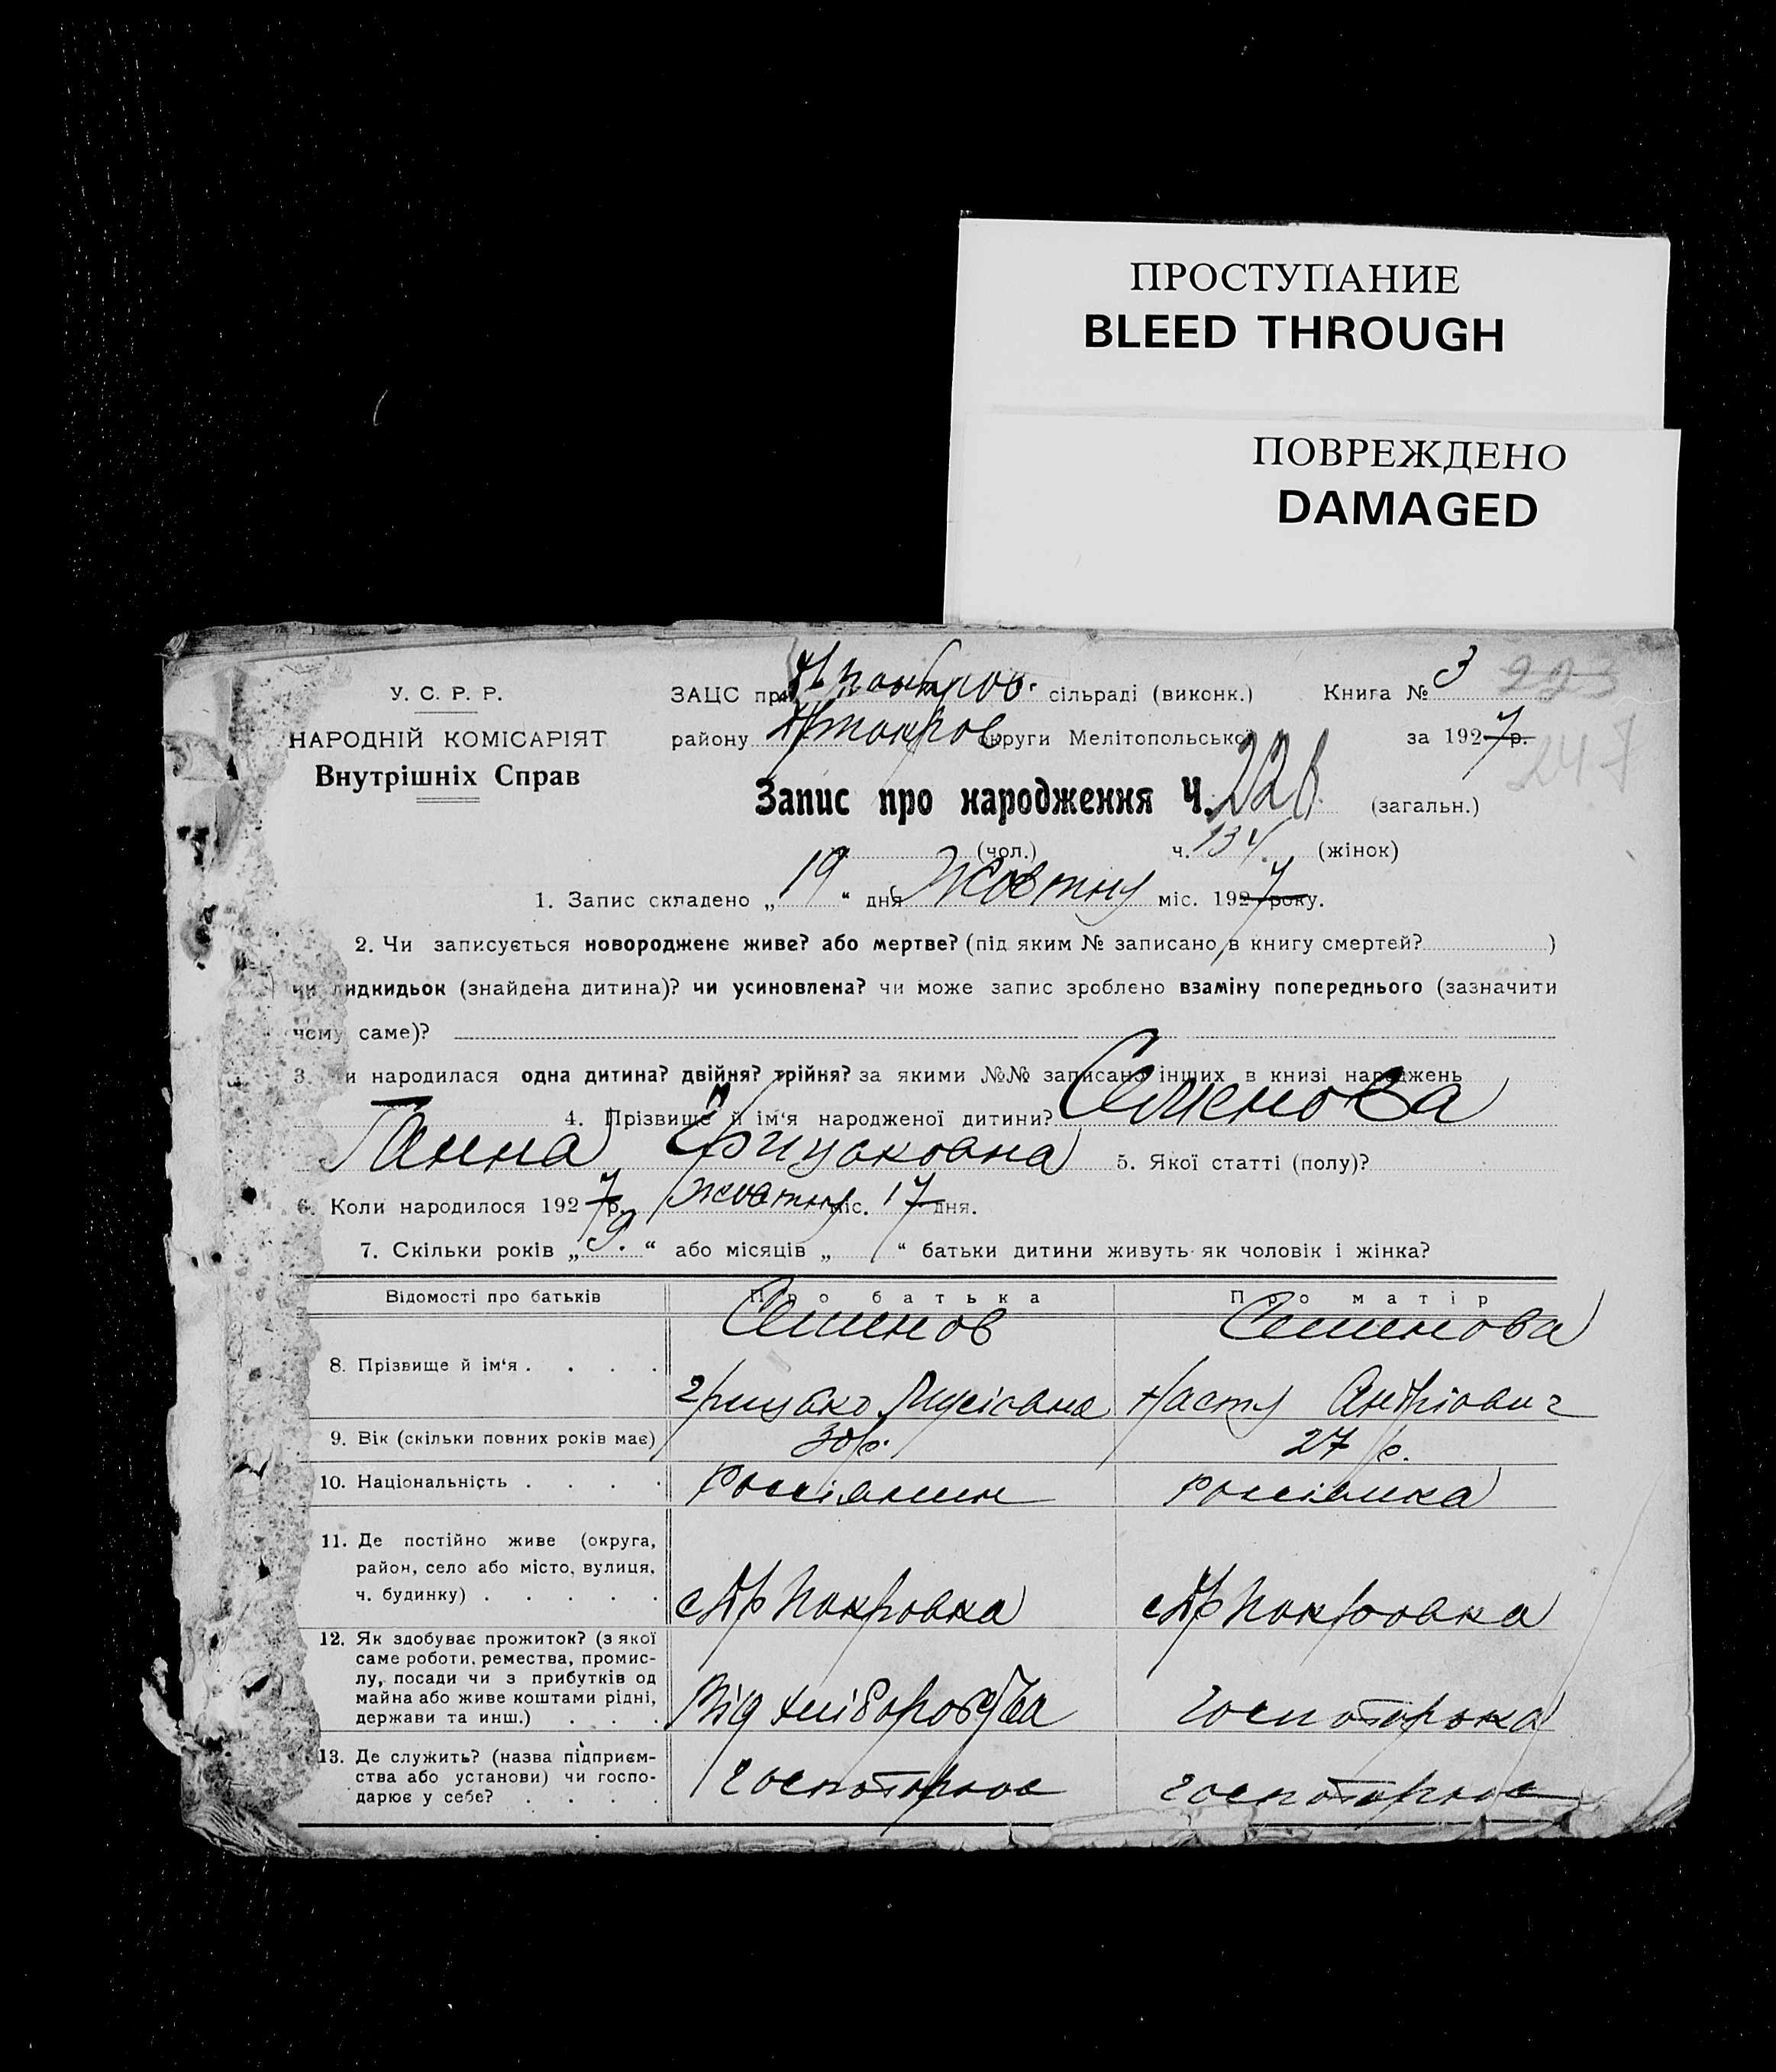 ПРОСТУПАНИЕ
BLEED THROUGH
ПОВРЕЖДЕНО
DAMAGED
У. С. Р. Р.
НАРОДНІЙ КОМІСАРІЯТ
Внутрішніх Справ
ЗАЦС при сільраді (виконк.) Книга № 3 223
району округи Мелітопольської за 1927 р. 247
Запис про народження Ч. (загальн.)
(чол.) ч. 134 (жінок)
1. Запис складено „19“ дня Жовтня міс. 1927 року.
2. Чи записується новороджене живе? або мертве? (під яким № записано в книгу смертей? )
чи підкидьок (знайдена дитина)? чи усиновлена? чи може запис зроблено взаміну попереднього (зазначити
чому саме)?
3. Чи народилася одна дитина? двійня? трійня? за якими №№ записано інших в книзі народжень
4. Прізвище й ім‘я народженої дитини? Семенова
Ганна Грицьковна 5. Якої статті (полу)?
6. Коли народилося 1927 р. жовтня міс. 17 дня.
7. Скільки років „9.“ або місяців „ “ батьки дитини живуть як чоловік і жінка?
Відомості про батьків Про батька Про матір
Семенов Семенова
8. Прізвище й ім‘я . . . .
Грицько Настя
9. Вік (скільки повних років має) 30 р. 27 р.
10. Національність . . . . россіянин россіянка
11. Де постійно живе (округа,
район, село або місто, вулиця,
ч. будинку) . . . . . с Нр Покровка с Нр Покровка
12. Як здобуває прожиток? (з якої
саме роботи, ремества, промис-
лу, посади чи з прибутків од
майна або живе коштами рідні,
держави та инш.) . . . Від хліборобства
13. Де служить? (назва підприєм-
ства або установи) чи госпо-
дарює у себе? . . . .